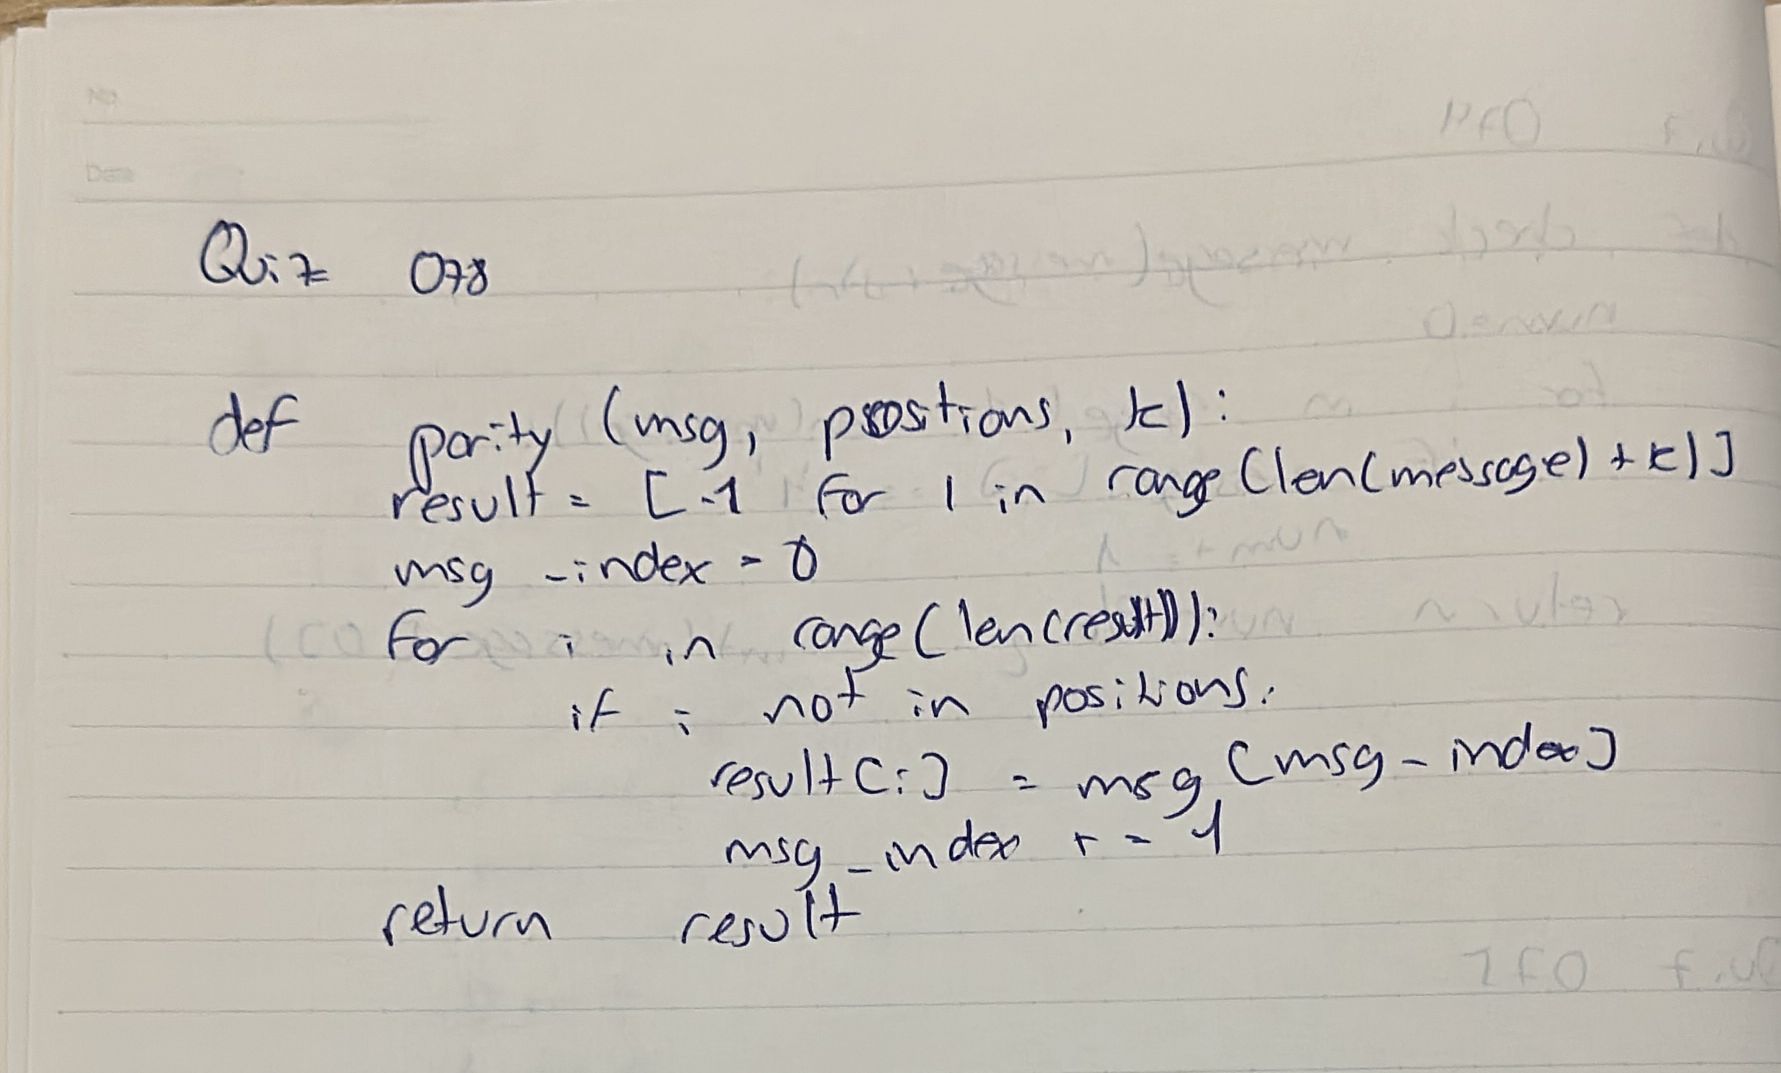 No.
Date
Quiz 078
def parity (msg, positions, k):
result = [-1 for i in range (len(message) + k)]
msg_index = 0
for i in range (len(result)):
if i not in positions:
result[i] = msg[msg_index]
msg_index += 1
return result